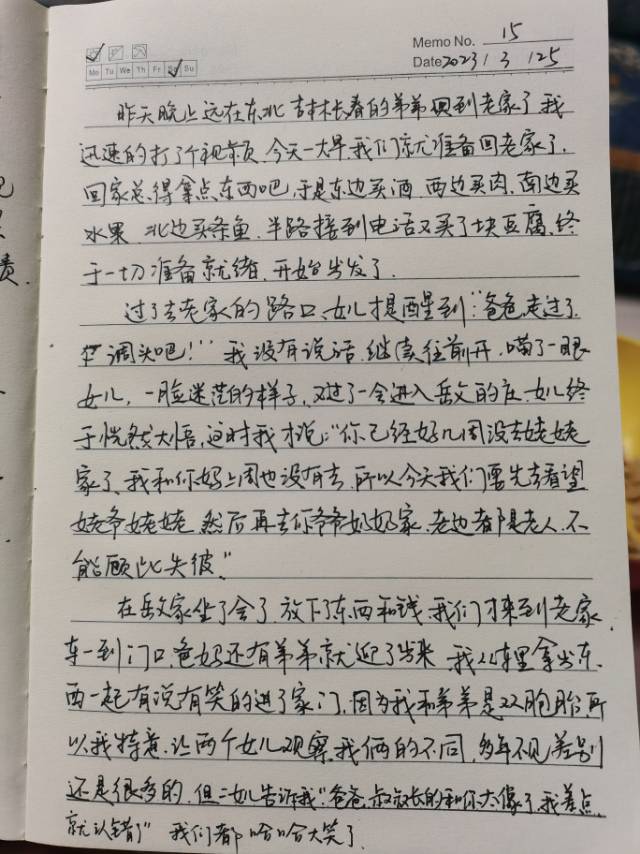 Memo No. 15
Mo Tu We Th Fr Sa Su
Date 2023 / 3 / 25
昨天晚上远在东北吉林长春的弟弟回到老家了,我
迅速的打了个视频,今天一大早我们就准备回老家了,
回家总得拿点东西吧,于是东边买酒,西边买肉,南边买
水果,北边买条鱼,半路接到电话又买了块豆腐,终
于一切准备就绪,开始出发了.
过了去老家的路口,女儿提醒到:"爸爸,走过了,
调头吧!" 我没有说话,继续往前开,瞄了一眼
女儿,一脸迷茫的样子,又过了一会进入岳父的庄,女儿终
于恍然大悟,这时我才说:"你已经好几周没去姥姥
家了,我和你妈上周也没有去,所以今天我们要先去看望
姥爷姥姥,然后再去你爷爷奶奶家,老边都是老人,不
能顾此失彼"
在岳父家坐了会了,放下了东西和钱,我们才来到老家,
车一到门口,爸妈还有弟弟就迎了出来,我从车里拿出东
西一起有说有笑的进了家门,因为我和弟弟是双胞胎,所
以我特意让两个女儿观察我俩的不同,多年不见差别
还是很多的,但二女儿告诉我"爸爸,叔叔长的和你太像了,我差点
就认错了" 我们都哈哈大笑了.